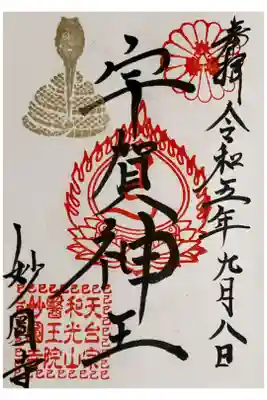 奉拝 令和五年九月八日
宇賀神王
妙圓寺
天台宗
和光山
醫王院
妙圓寺